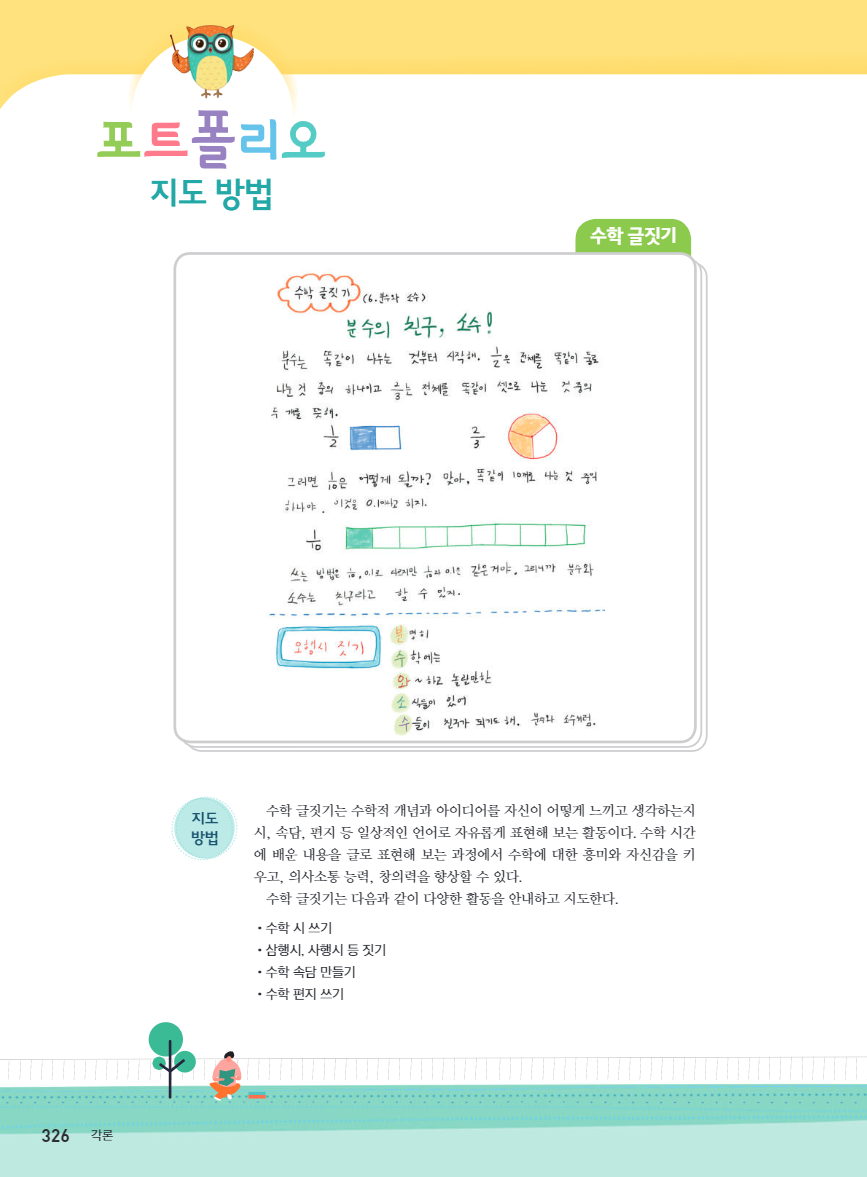 포트폴리오
지도 방법
수학 글짓기
수학 글짓기 (6. 분수와 소수)
분수의 친구, 소수!
분수는 똑같이 나누는 것부터 시작해. 1/2은 전체를 똑같이 둘로
나눈 것 중의 하나이고 2/3는 전체를 똑같이 셋으로 나눈 것 중의
두 개를 뜻해.
1/2 2/3
그러면 1/10은 어떻게 될까? 맞아, 똑같이 10개로 나눈 것 중의
하나야. 이것을 0.1이라고 하지.
1/10
쓰는 방법은 1/10, 0.1로 다르지만 1/10과 0.1은 같은거야. 그러니까 분수와
소수는 친구라고 할 수 있지.
오행시 짓기
분명히
수학에는
와~하고 놀랄만한
소식들이 있어
수들이 친구가 되기도 해. 분수와 소수처럼.
지도
방법
수학 글짓기는 수학적 개념과 아이디어를 자신이 어떻게 느끼고 생각하는지
시, 속담, 편지 등 일상적인 언어로 자유롭게 표현해 보는 활동이다. 수학 시간
에 배운 내용을 글로 표현해 보는 과정에서 수학에 대한 흥미와 자신감을 키
우고, 의사소통 능력, 창의력을 향상할 수 있다.
수학 글짓기는 다음과 같이 다양한 활동을 안내하고 지도한다.
• 수학 시 쓰기
• 삼행시, 사행시 등 짓기
• 수학 속담 만들기
• 수학 편지 쓰기
326 각론